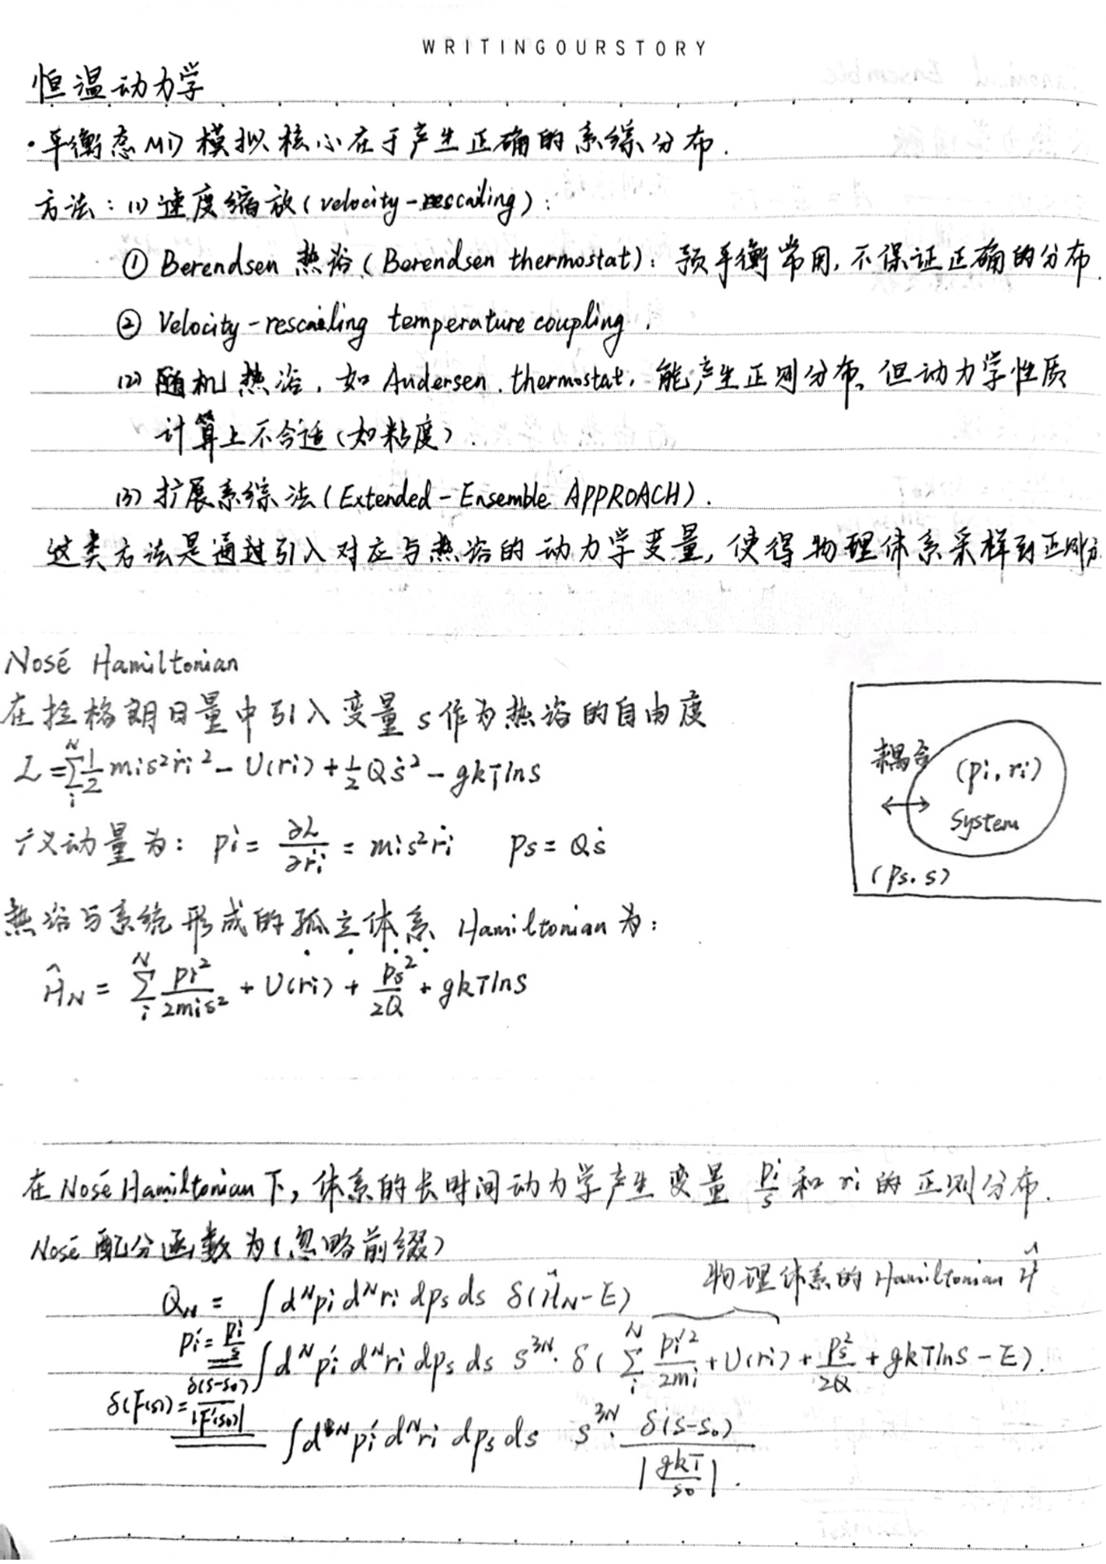 WRITINGOURSTORY
恒温动力学
·平衡态MD模拟核心在于产生正确的系综分布.
方法:(1)速度缩放(velocity-rescaling):
① Berendsen 热浴(Berendsen thermostat):预平衡常用,不保证正确的分布.
② Velocity-rescaling temperature coupling.
(2) 随机热浴,如 Andersen thermostat,能产生正则分布,但动力学性质
计算上不合适(如粘度).
(3) 扩展系综法(Extended-Ensemble APPROACH).
这类方法是通过引入对应与热浴的动力学变量,使得物理体系采样到正则分
Nosé Hamiltonian
在拉格朗日量中引入变量 s作为热浴的自由度
L = Σ_i^N 1/2 mis²ṙi² - U(ri) + 1/2 Qṡ² - gkTlns
广义动量为: pi = ∂L/∂ṙi = mis²ṙi ps = Qṡ
耦合
↔
(pi, ri)
System
(ps, s)
热浴与系统形成的孤立体系 Hamiltonian为:
Ĥ_N = Σ_i^N pi²/2mis² + U(ri) + ps²/2Q + gkTlns
在Nosé Hamiltonian下,体系的长时间动力学产生变量 pi/s 和 ri 的正则分布.
Nosé 配分函数为(忽略前缀)
物理体系的 Hamiltonian Ĥ
Q_N = ∫d^N pi d^N ri dps ds δ(Ĥ_N - E)
pi' = pi/s ∫d^N pi' d^N ri dps ds s^3N · δ( Σ_i^N pi'²/2mi + U(ri) + ps²/2Q + gkTlns - E).
δ(F(s)) = δ(s-s₀)/|F'(s₀)| ∫d^N pi' d^N ri dps ds s^3N · δ(s-s₀)/|gkT/s₀|.